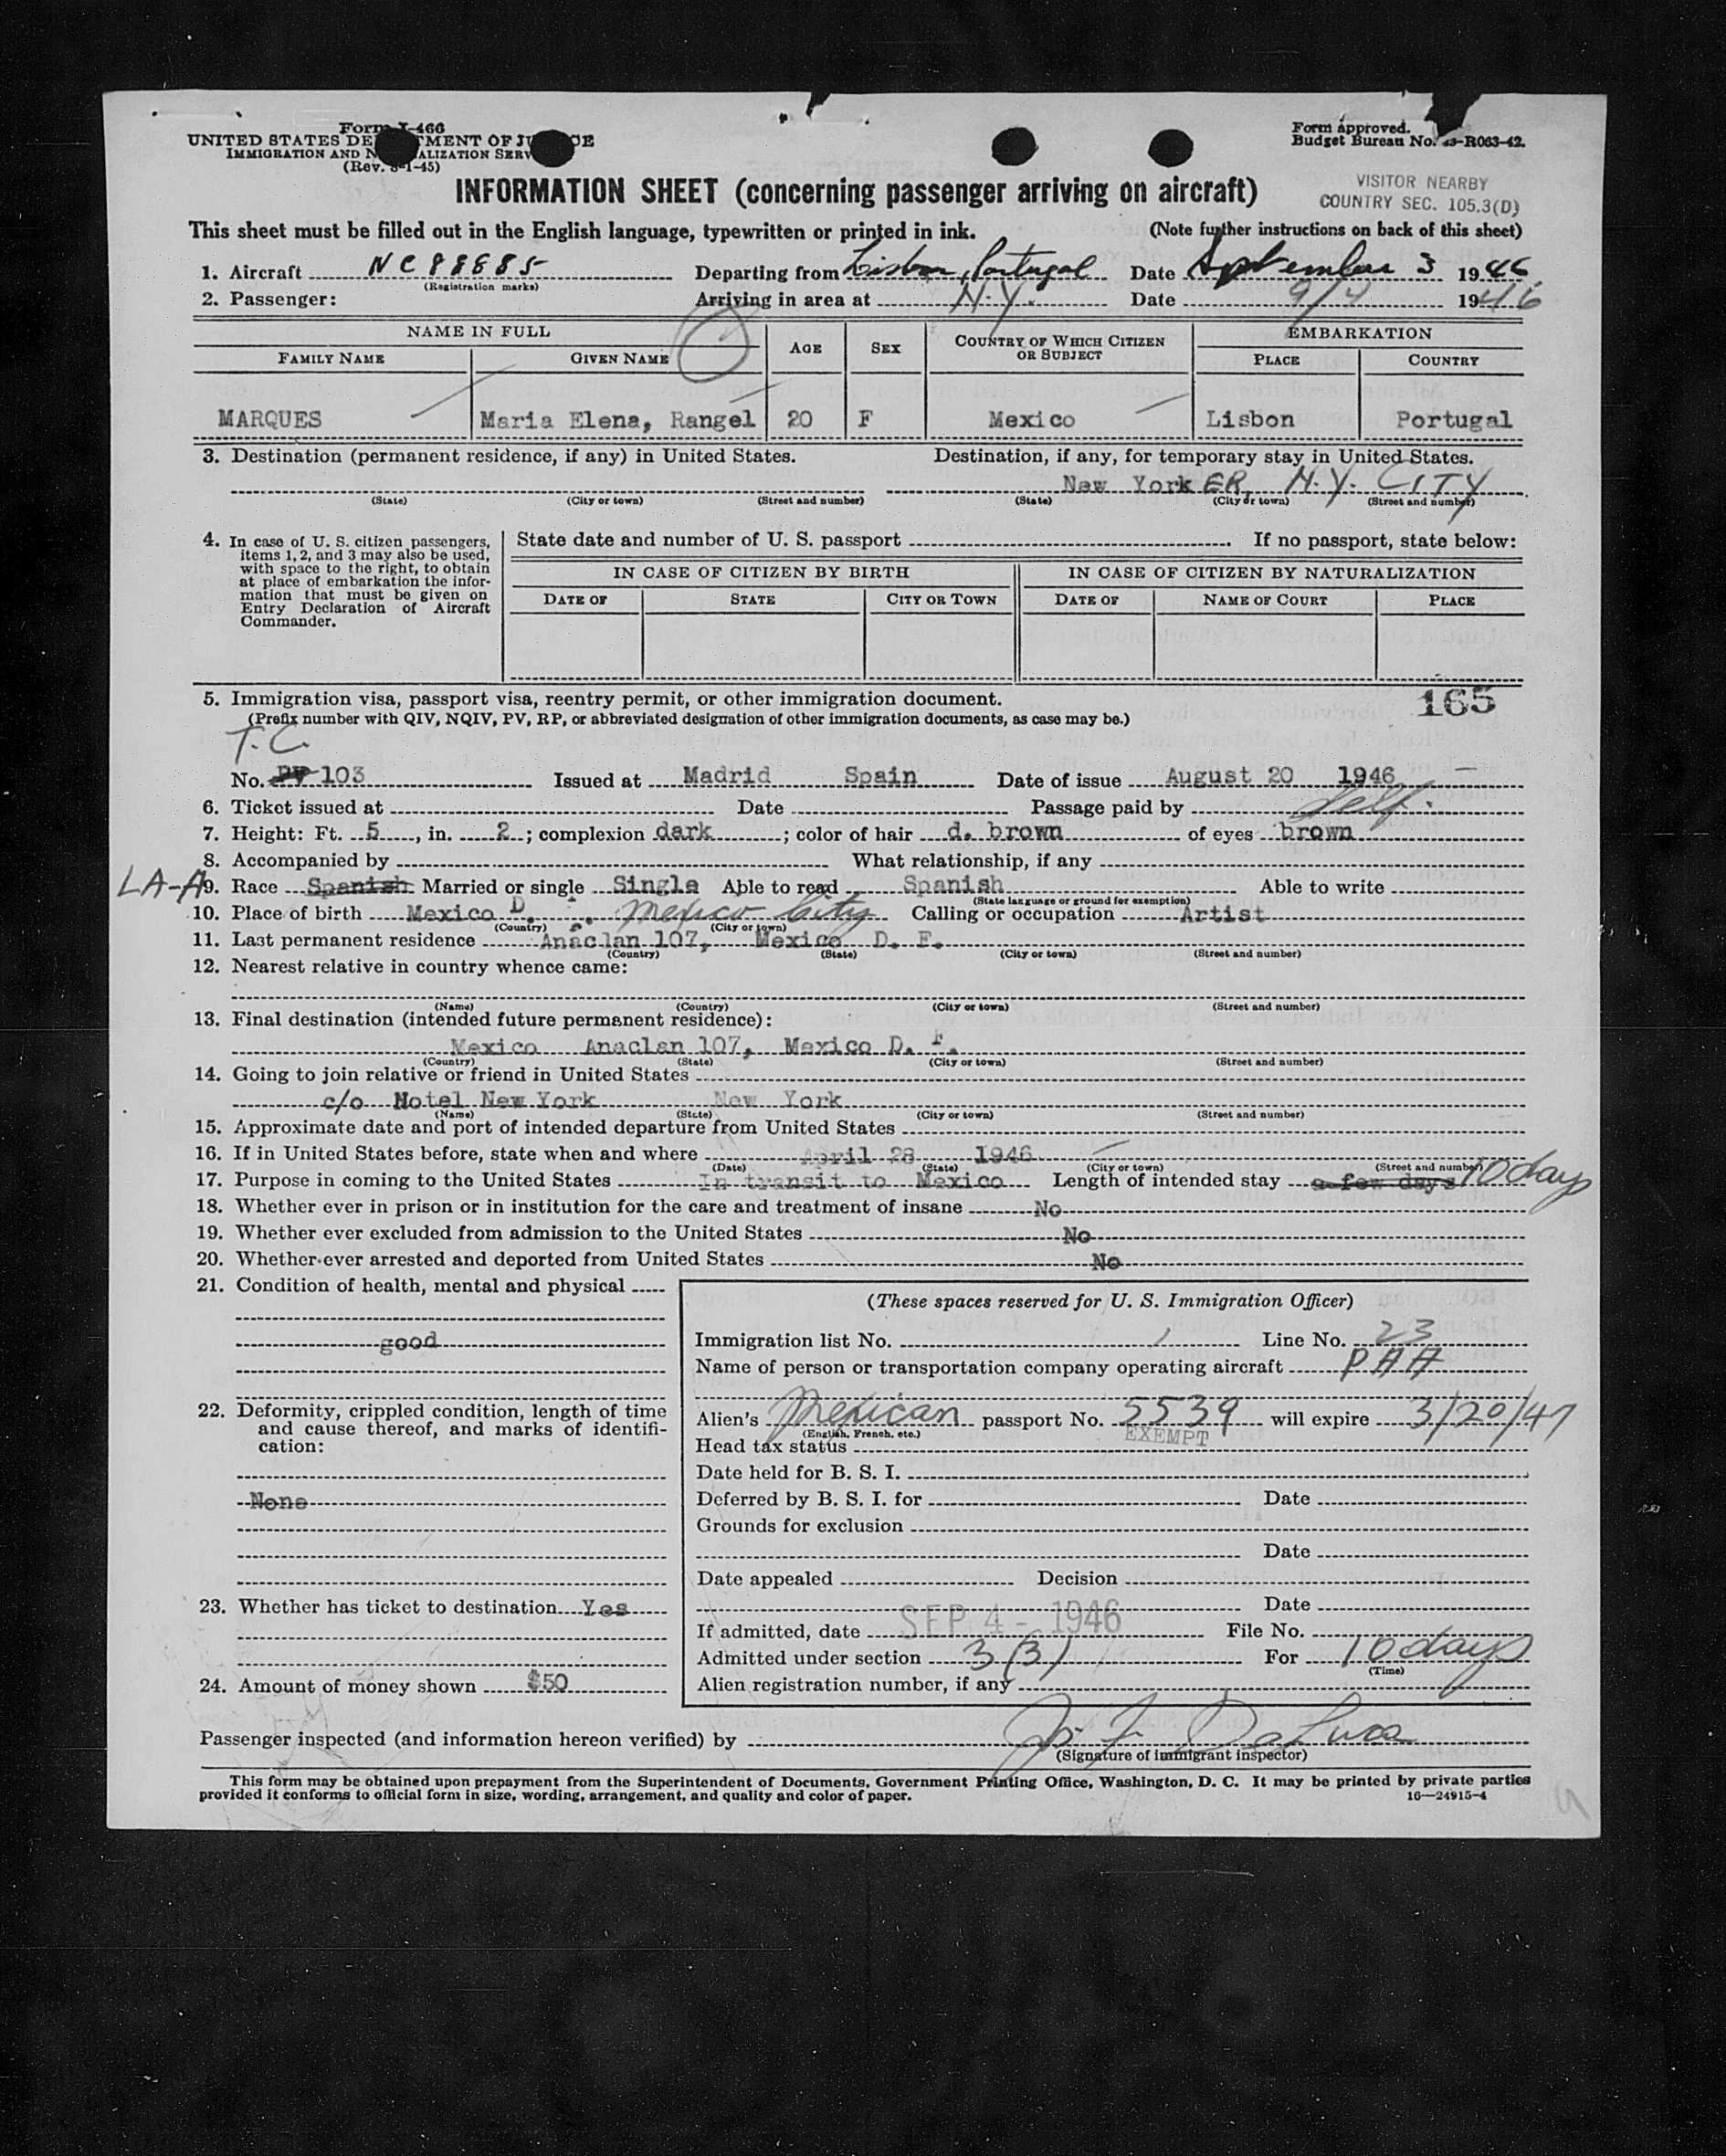 Form I-466
UNITED STATES DEPARTMENT OF JUSTICE
IMMIGRATION AND NATURALIZATION SERVICE
(Rev. 3-1-45)
Form approved.
Budget Bureau No. 43-R063-42.
INFORMATION SHEET (concerning passenger arriving on aircraft)
VISITOR NEARBY
COUNTRY SEC. 105.3(D)
This sheet must be filled out in the English language, typewritten or printed in ink. (Note further instructions on back of this sheet)
1. Aircraft NC88885 Departing from Lisbon, Portugal Date September 3 1946
(Registration marks)
2. Passenger: Arriving in area at N.Y. Date 9/4 1946
NAME IN FULL AGE SEX COUNTRY OF WHICH CITIZEN OR SUBJECT EMBARKATION
FAMILY NAME GIVEN NAME PLACE COUNTRY
MARQUES Maria Elena, Rangel 20 F Mexico Lisbon Portugal
3. Destination (permanent residence, if any) in United States. Destination, if any, for temporary stay in United States.
New York ER, N.Y. CITY
(State) (City or town) (Street and number) (State) (City or town) (Street and number)
4. In case of U. S. citizen passengers, items 1, 2, and 3 may also be used, with space to the right, to obtain at place of embarkation the information that must be given on Entry Declaration of Aircraft Commander.
State date and number of U. S. passport If no passport, state below:
IN CASE OF CITIZEN BY BIRTH IN CASE OF CITIZEN BY NATURALIZATION
DATE OF STATE CITY OR TOWN DATE OF NAME OF COURT PLACE
5. Immigration visa, passport visa, reentry permit, or other immigration document. 165
(Prefix number with QIV, NQIV, PV, RP, or abbreviated designation of other immigration documents, as case may be.)
T.C.
No. PV 103 Issued at Madrid Spain Date of issue August 20 1946
6. Ticket issued at Date Passage paid by Self.
7. Height: Ft. 5, in. 2; complexion dark; color of hair d. brown of eyes brown
8. Accompanied by What relationship, if any
LA-A 9. Race Spanish Married or single Single Able to read Spanish Able to write
(State language or ground for exemption)
10. Place of birth Mexico D. F. Mexico City Calling or occupation Artist
(Country) (City or town)
11. Last permanent residence Anaclan 107, Mexico D. F.
(Country) (State) (City or town) (Street and number)
12. Nearest relative in country whence came:
(Name) (Country) (City or town) (Street and number)
13. Final destination (intended future permanent residence):
Mexico Anaclan 107, Mexico D. F.
(Country) (State) (City or town) (Street and number)
14. Going to join relative or friend in United States
c/o Hotel New York New York
(Name) (State) (City or town) (Street and number)
15. Approximate date and port of intended departure from United States
16. If in United States before, state when and where April 28 1946
(Date) (State) (City or town) (Street and number)
17. Purpose in coming to the United States In transit to Mexico Length of intended stay a few days 10 days
18. Whether ever in prison or in institution for the care and treatment of insane No
19. Whether ever excluded from admission to the United States No
20. Whether ever arrested and deported from United States No
21. Condition of health, mental and physical
good
22. Deformity, crippled condition, length of time and cause thereof, and marks of identification:
None
23. Whether has ticket to destination Yes
24. Amount of money shown $50
(These spaces reserved for U. S. Immigration Officer)
Immigration list No. 1 Line No. 23
Name of person or transportation company operating aircraft PAA
Alien's Mexican passport No. 5539 will expire 3/20/47
(English, French, etc.)
Head tax status EXEMPT
Date held for B. S. I.
Deferred by B. S. I. for Date
Grounds for exclusion
Date
Date appealed Decision
Date
If admitted, date SEP 4 - 1946 File No.
Admitted under section 3(3) For 10 days
(Time)
Alien registration number, if any
Passenger inspected (and information hereon verified) by
(Signature of immigrant inspector)
This form may be obtained upon prepayment from the Superintendent of Documents, Government Printing Office, Washington, D. C. It may be printed by private parties
provided it conforms to official form in size, wording, arrangement, and quality and color of paper. 16—24915-4